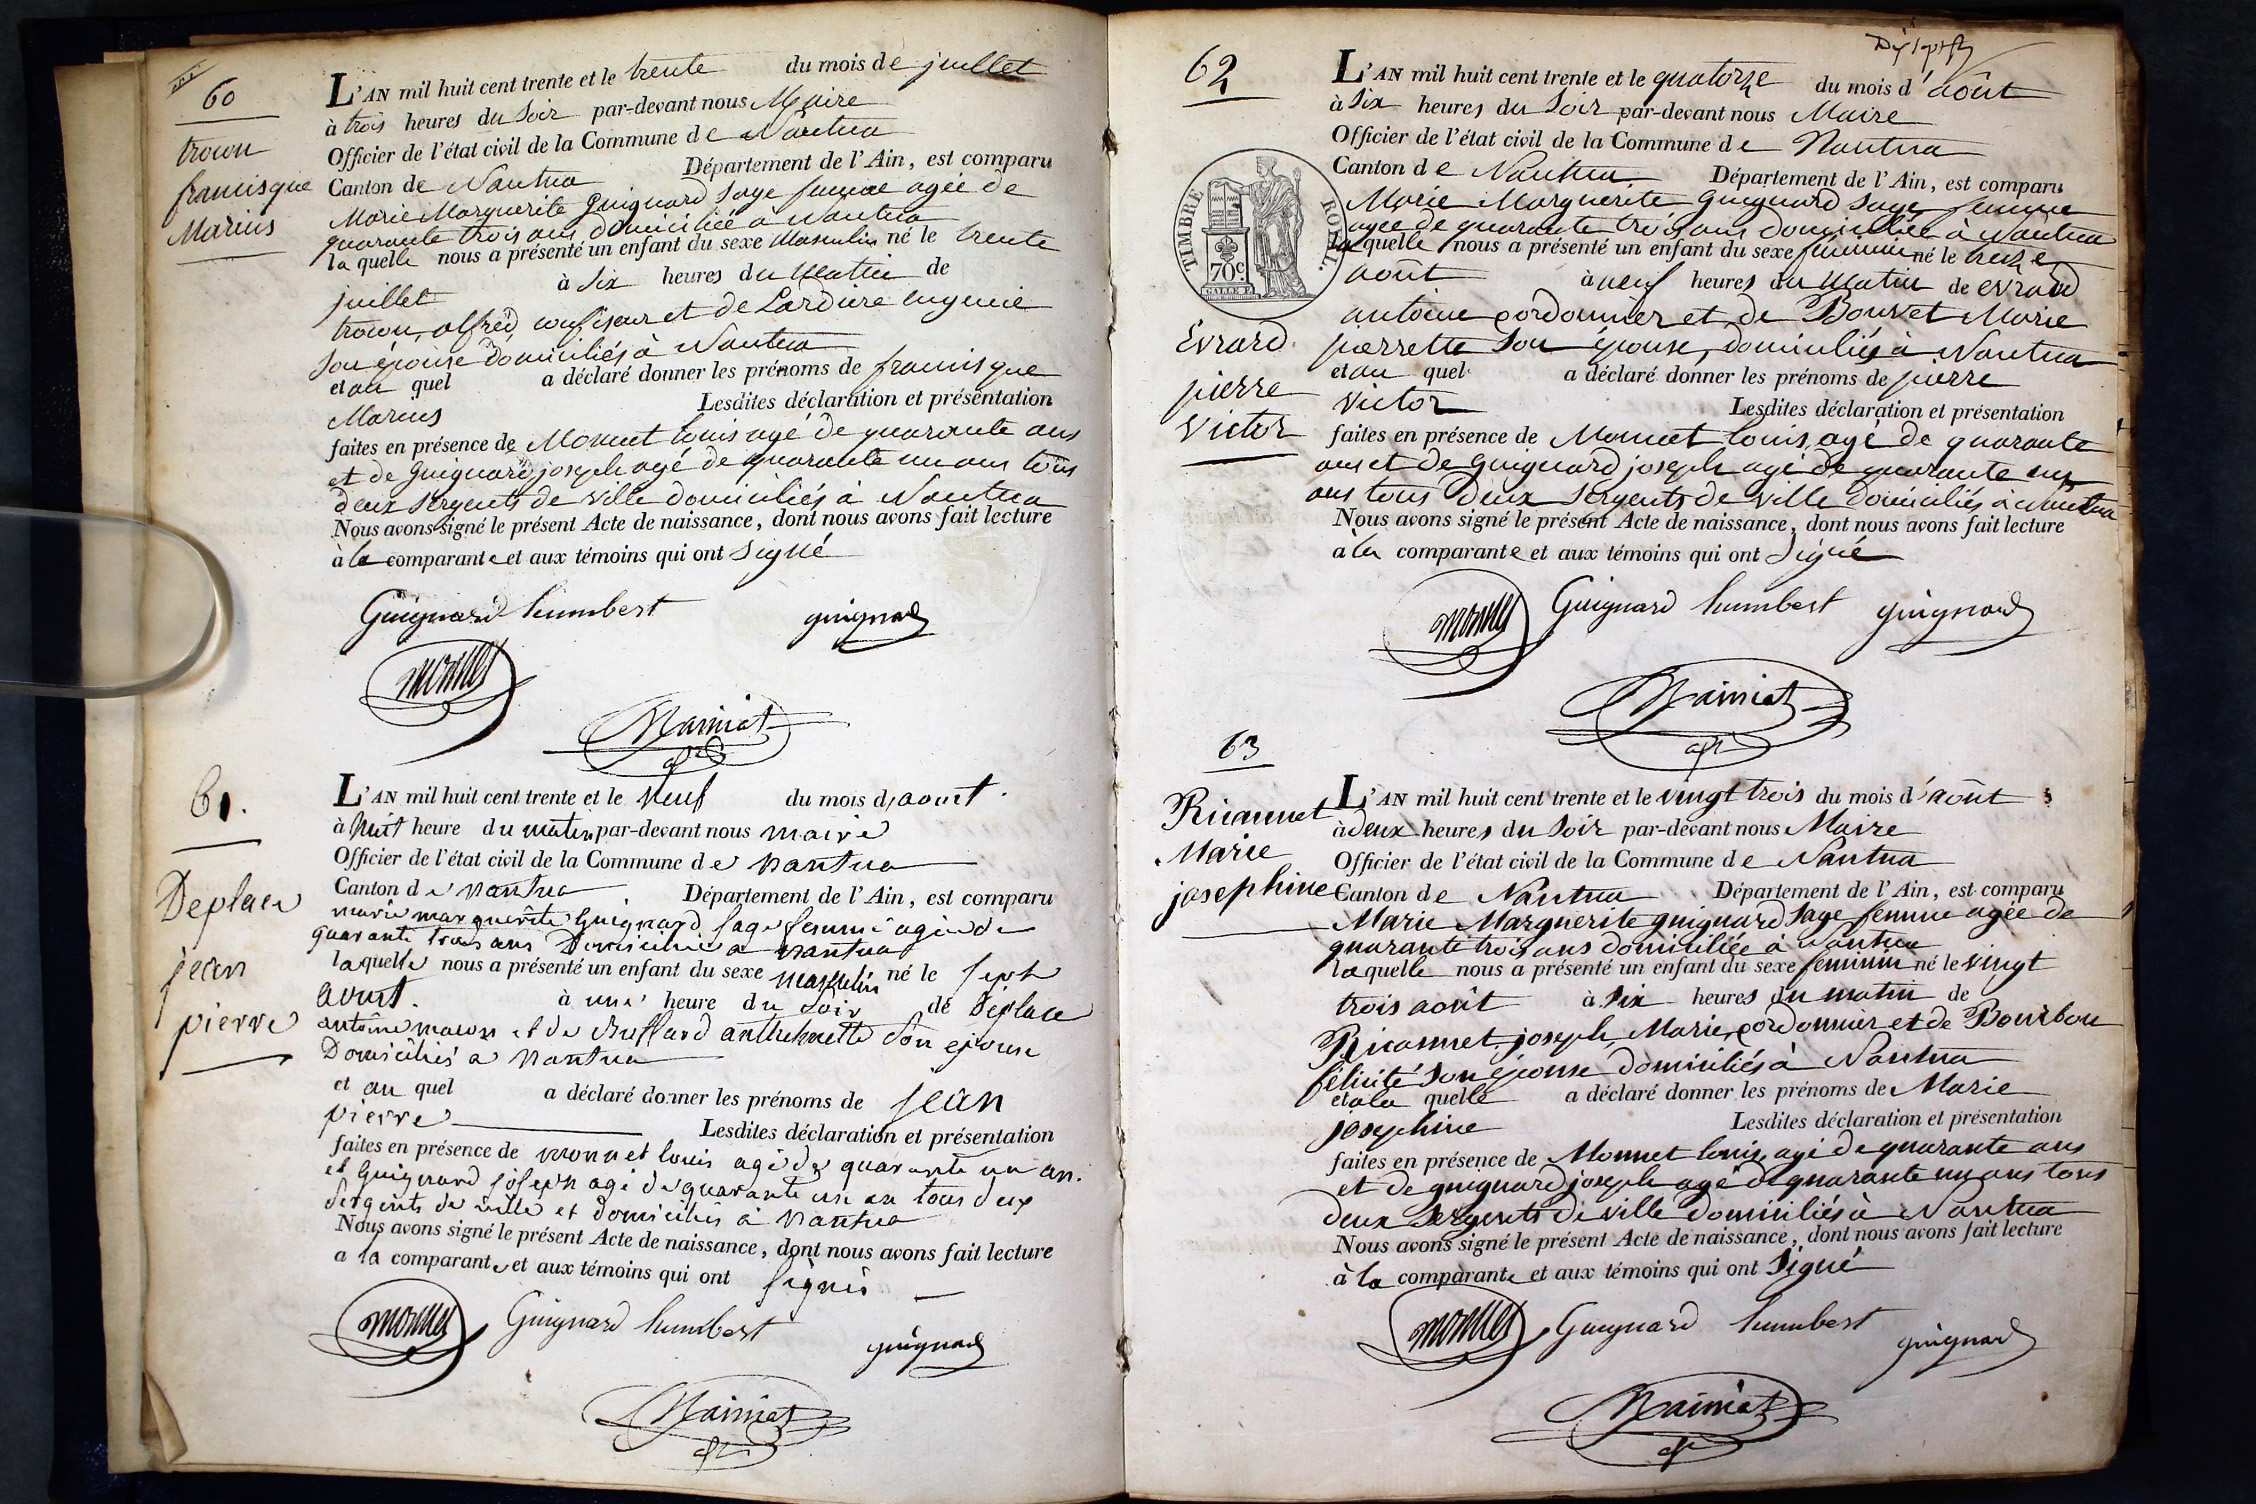 60
trown
francisque
Marius
L'AN mil huit cent trente et le trente du mois de juillet
à trois heures du Soir par-devant nous Maire
Officier de l'état civil de la Commune de Nantua
Canton de Nantua Département de l'Ain, est comparu
Marie Marguerite Guignard Sage femme agée de
quarante trois ans domiciliée à Nantua
la quelle nous a présenté un enfant du sexe Masculin né le trente
juillet à Six heures du Matin de
trown, alfred, confiseur et de Lardiere eugenie
Son épouse domiciliés à Nantua
et au quel a déclaré donner les prénoms de francisque
Marius Lesdites déclaration et présentation
faites en présence de Monnet louis agé de quarante ans
et de Guignard joseph agé de quarante un ans tous
deux Sergents de Ville domiciliés à Nantua
Nous avons signé le présent Acte de naissance, dont nous avons fait lecture
à la comparante et aux témoins qui ont Signé
Guignard humbert guignard
monnet
61.
Deplace
jean
pierre
L'AN mil huit cent trente et le neuf du mois d'aout.
à huit heure du matin par-devant nous maire
Officier de l'état civil de la Commune de nantua
Canton de nantua Département de l'Ain, est comparu
marie marguerite Guignard sage femme agée de
quarante trois ans Domicilié a nantua
la quelle nous a présenté un enfant du sexe masculin né le sept
aout. à une heure du soir de Deplace
antoine macon et de anthelmette son epouse
Domiciliés a nantua
et au quel a déclaré donner les prénoms de jean
pierre Lesdites déclaration et présentation
faites en présence de monnet louis agé de quarante un an.
et Guignard joseph agé de quarante un an tous deux
sergents de ville et domiciliés à nantua
Nous avons signé le présent Acte de naissance, dont nous avons fait lecture
a la comparante et aux témoins qui ont signés
monnet Guignard humbert guignard
62
TIMBRE ROYAL.
70c.
Evrard
pierre
Victor
L'AN mil huit cent trente et le quatorze du mois d'août
à Six heures du Soir par-devant nous Maire
Officier de l'état civil de la Commune de Nantua
Canton de Nantua Département de l'Ain, est comparu
Marie Marguerite Guignard Sage femme
agée de quarante trois ans domiciliée à Nantua
la quelle nous a présenté un enfant du sexe feminin né le treize
août à neuf heures du Matin de evrard
antoine cordonnier et de Bouvet Marie
pierrette Son épouse, domiciliés à Nantua
et au quel a déclaré donner les prénoms de pierre
Victor Lesdites déclaration et présentation
faites en présence de Monnet louis, agé de quarante
ans et de Guignard joseph agé de quarante un
ans tous deux Sergents de Ville domiciliés à Nantua
Nous avons signé le présent Acte de naissance, dont nous avons fait lecture
à la comparante et aux témoins qui ont Signé
monnet Guignard humbert guignard
63
Ricannet
Marie
josephine
L'AN mil huit cent trente et le vingt trois du mois d'août
à deux heures du Soir par-devant nous Maire
Officier de l'état civil de la Commune de Nantua
Canton de Nantua Département de l'Ain, est comparu
Marie Marguerite guignard Sage femme agée de
quarante trois ans domiciliée à Nantua
la quelle nous a présenté un enfant du sexe feminin né le vingt
trois août à Six heures du matin de
Ricannet, joseph, Marie, cordonnier et de Bourbon
félicité Son épouse domiciliés à Nantua
et a la quelle a déclaré donner les prénoms de Marie
josephine Lesdites déclaration et présentation
faites en présence de Monnet louis, agé de quarante ans
et de guignard joseph agé de quarante un ans tous
deux Sergents de ville domiciliés à Nantua
Nous avons signé le présent Acte de naissance, dont nous avons fait lecture
à la comparante et aux témoins qui ont Signé
monnet Guignard humbert guignard